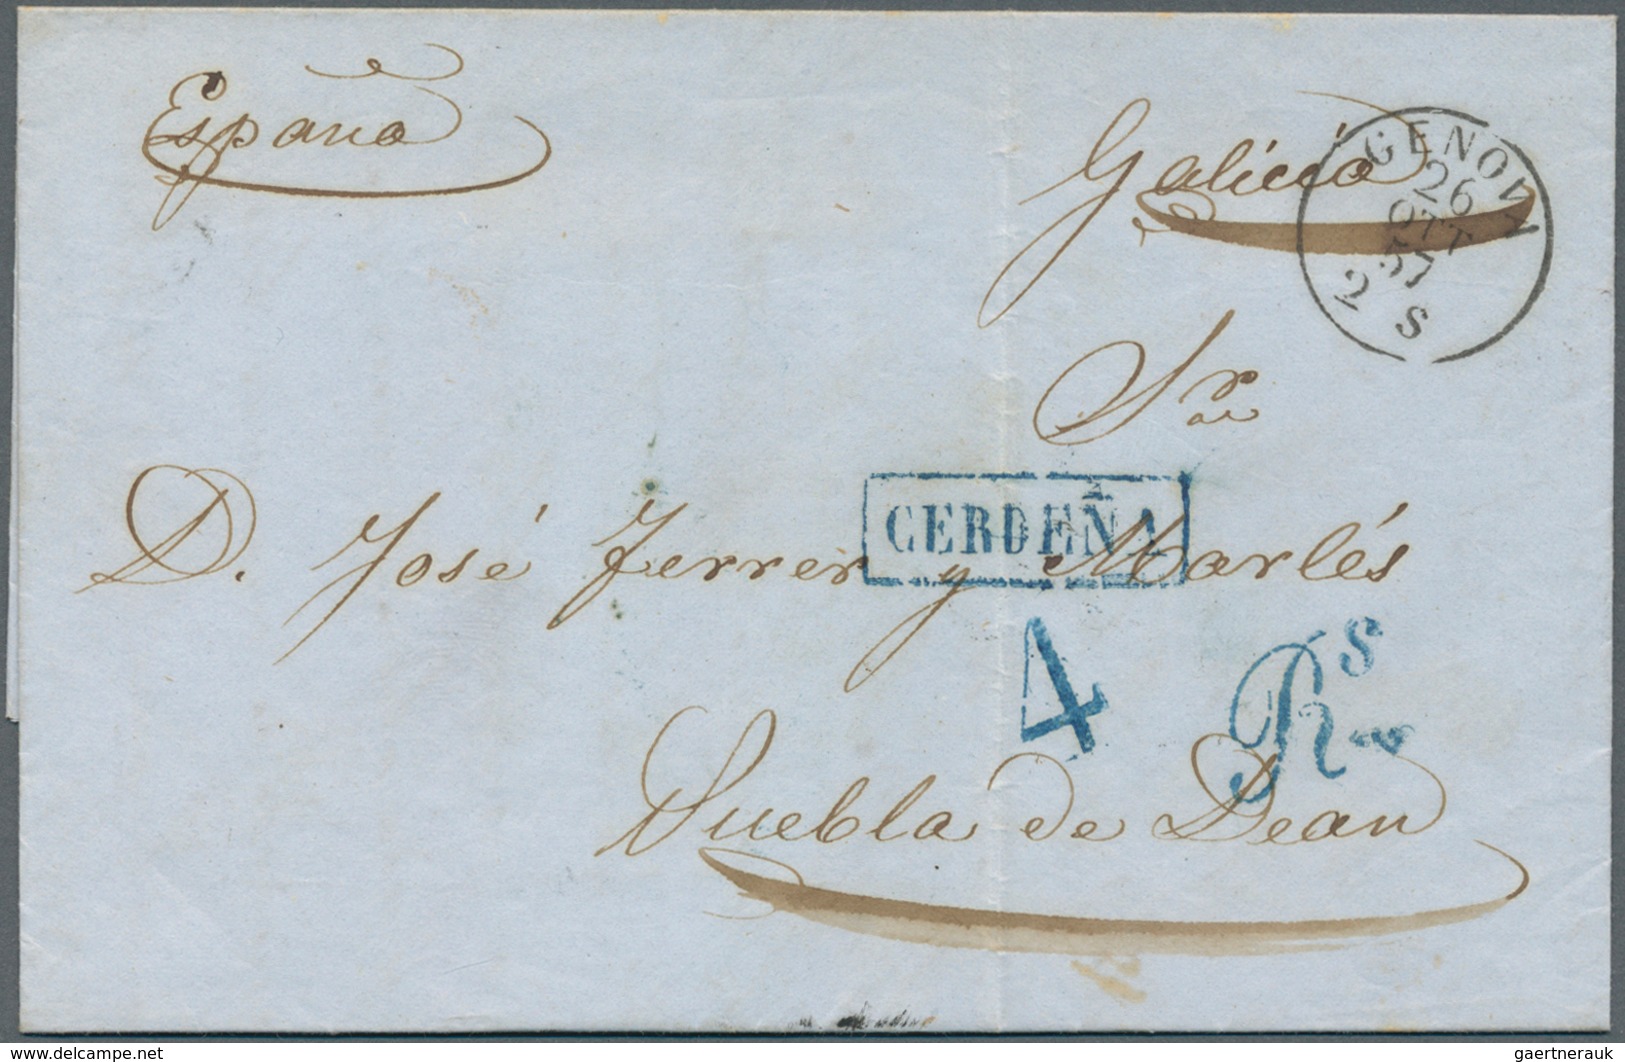 España
Galicia
GENOVA
26
OTT
57
2 S
Sr
D. José Ferrer y Marlés
CERDEÑA
4 Rs
Puebla de Dean
www.delcampe.net
gaertnerauk